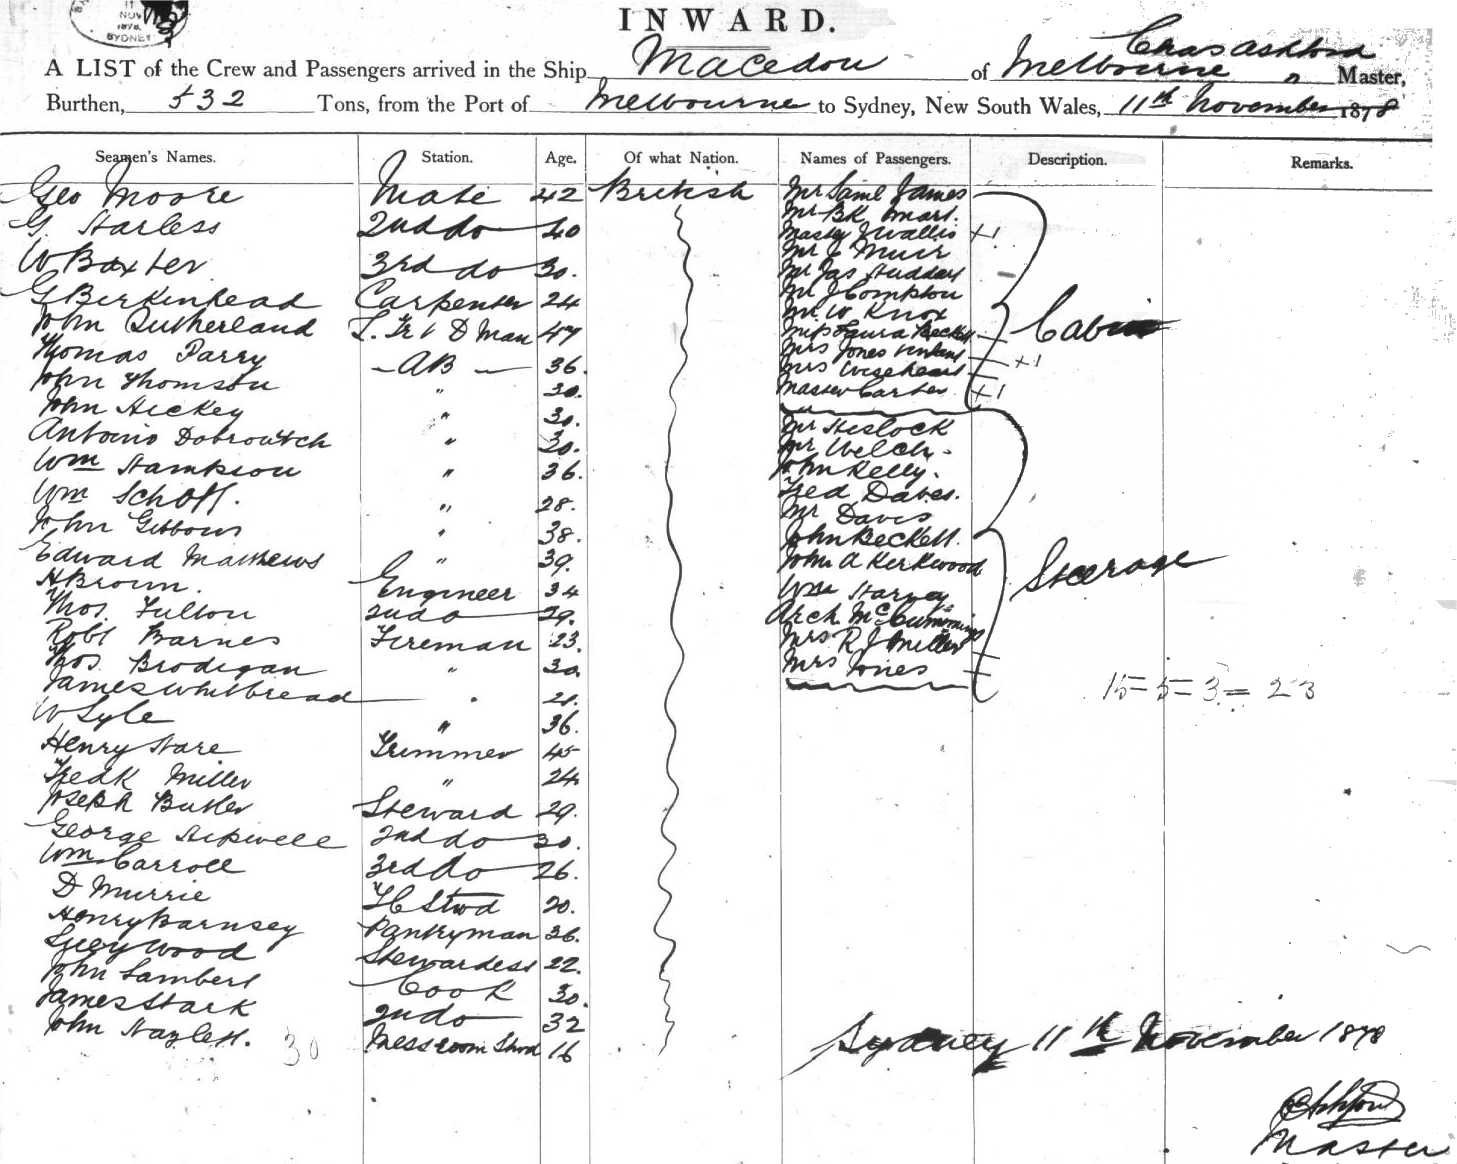 11
NOV
1878
SYDNEY
INWARD.
Chas Ashford
A LIST of the Crew and Passengers arrived in the Ship Macedon of Melbourne Master,
Burthen, 532 Tons, from the Port of Melbourne to Sydney, New South Wales, 11th November 1878
Seamen's Names. Station. Age. Of what Nation. Names of Passengers. Description. Remarks.
Geo Moore Mate 42 British Mr Saml James
G. Harless 2nd do 40 Mr BK Mart.
W Baxter 3rd do 30. Master J Wallis
G Birkinhead Carpenter 24 Mr Muir
John Sutherland L. Tr & D Man 47 Mr Jas Huddart
Thomas Parry AB 36 Mr J Compton
John Thomson " 30. Mr W Knox
John Hickey " 30. Miss Laura Beckett
Antonio Dobrowitch " 30. Mrs Jones
Wm Hampson " 36. Mrs Wisehart
Wm Schoff. " 28. Master Carter
John Gibbons " 38. Cabin
Edward Mathews " 39. Mr Heslock
H Brown. Engineer 34 Mr Welch.
Thos. Fulton 2nd do 29. John Kelly.
Robt Barnes Fireman 23. Fred Daves.
Thos. Brodigan " 30. Mr Davis
James Whitbread " 21. John Beckett.
W Lyle " 36. John A Kirkwood
Henry Hare Trimmer 45 Wm Harney
Fredk Miller " 24 Arch McCummings
Joseph Butler Steward 29. Mrs R J Miller
George Hipwell 2nd do 30. Mrs Jones
Wm Carroll 3rd do 26. Steerage
D Murrie FC Stwd 20. 15 = 5 = 3 = 23
Henry Barnsey Pantryman 36.
Lucy Wood Stewardess 22.
John Lambert Cook 30.
James Stark 2nd do 32
John Hazlett. Messroom Stwd 16
30
Sydney 11th November 1878
C Ashford
Master